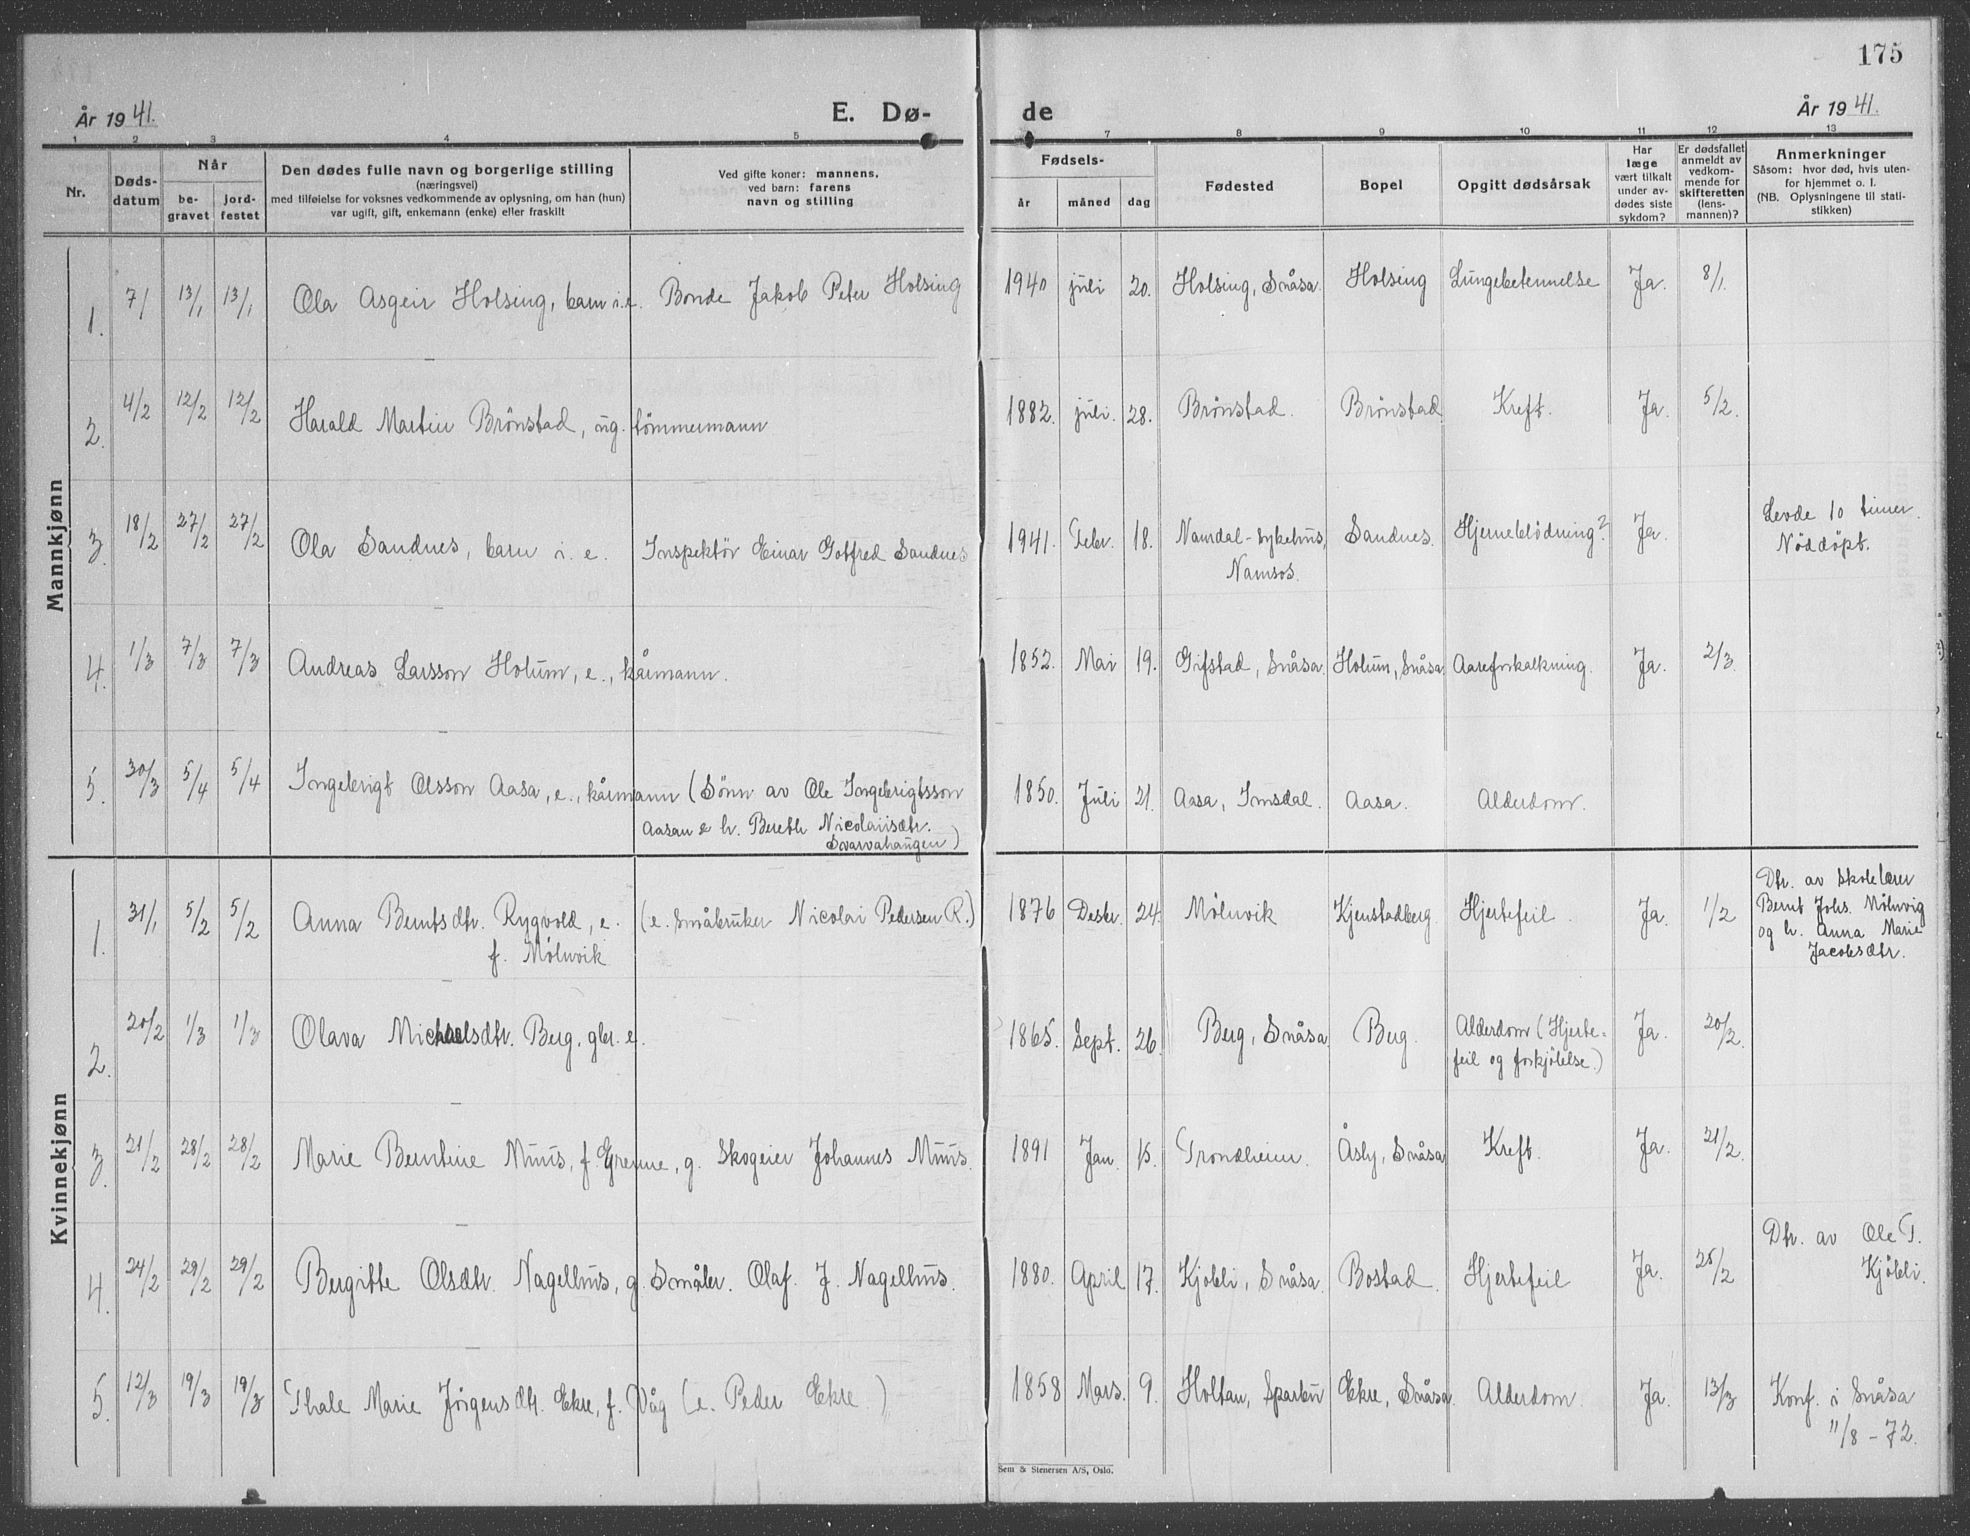 175
År 1941.
E. Dø-
de
År 1941.
1 2 3 4 5 7 8 9 10 11 12 13
Nr.
Døds-
datum
Når
be-
gravet
jord-
festet
Den dødes fulle navn og borgerlige stilling
(næringsvei)
med tilføielse for voksnes vedkommende av oplysning, om han (hun)
var ugift, gift, enkemann (enke) eller fraskilt
Ved gifte koner: mannens,
ved barn: farens
navn og stilling
Fødsels-
år måned dag
Fødested
Bopel
Opgitt dødsårsak
Har
læge
vært tilkalt
under av-
dødes siste
sykdom?
Er dødsfallet
anmeldt av
vedkom-
mende for
skifteretten
(lens-
mannen)?
Anmerkninger
Såsom: hvor død, hvis uten-
for hjemmet o. l.
(NB. Oplysningene til stati-
stikken)
Mannkjønn
1. 7/1 13/1 13/1 Ola Asgeir Holsing, barn i.e. Bonde Jakob Peter Holsing 1940 juli 20. Holsing, Snåsa. Holsing Lungebetennelse Ja. 8/1.
2. 4/2 12/2 12/2 Harald Martin Brönstad, ug. tömmermann 1882. juli. 28. Brönstad. Brönstad Kreft. Ja. 5/2.
3. 18/2 27/2 27/2 Ola Sandnes, barn i. e. Inspektör Einar Gotfred Sandnes 1941. Febr. 18. Namdal-sykehus, Sandnes. Hjerneblödning? Ja. Levde 10 timer.
Namsos. Nöddöpt.
4. 1/3 7/3 7/3 Andreas Larsson Holum, e., kårmann. 1852. Mai 19. Gifstad, Snåsa. Holum, Snåsa. Aareforkalkning. Ja. 2/3.
5. 30/3 5/4 5/4 Ingebrigt Olsson Aasa, e., kårmann (Sönn av Ole Ingebrigtsson 1850. Juli 21. Aasa, Imsdal. Aasa. Alderdom.
Aasan & h. Bereth Nicolaisdtr.
Svarvahaugen)
Kvinnekjønn
1. 31/1 5/2 5/2 Anna Berntsdtr. Rygvold, e. (e. småbruker Nicolai Pedersen R.) 1876 Desbr. 24. Mölnvik Kjenstadberg. Hjertefeil. Ja. 1/2
f. Mölnvik
Dtr. av skolelærer
Bernt Johs. Mölnvig
og h. Anna Marie
Jacobsdtr.
2. 20/2 1/3 1/3 Olava Michaelsdtr. Berg, gbr. e. 1865. Sept. 26. Berg, Snåsa. Berg. Alderdom (Hjerte- Ja. 20/2.
feil og forkjölelse.)
3. 21/2 28/2 28/2 Marie Berntine Muus, f. Grenne, g. Skogeier Johannes Muus. 1891 Jan. 15. Trondheim. Åsly, Snåsa Kreft. Ja. 21/2.
4. 24/2 29/2 29/2 Bergitte Olsdtr. Nagelhus, g. Småbr. Olaf J. Nagelhus. 1880. April 17. Kjöbli, Snåsa. Bostad. Hjertefeil Ja. 25/2
Dtr. av Ole T.
Kjöbli.
5. 12/3 19/3 19/3 Thale Marie Jörgensdtr. Ekre, f. Våg (e. Peder Ekre.) 1858 Mars. 9. Holtan, Sparbu Ekre, Snåsa. Alderdom. Ja. 13/3 Konf. i Snåsa
11/8 - 72.
Sem & Stenersen A/S, Oslo.